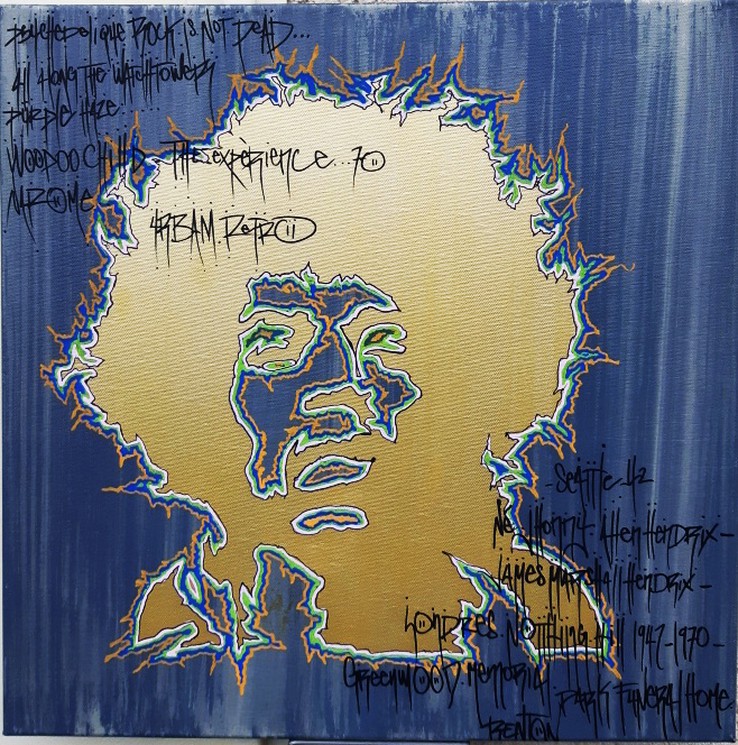 PSYCHEDELIQUE ROCK IS NOT DEAD...
All Along THE WATCHTOWERS
PURPLE HAZE
WOODOO CHILD. THE experience...70
MROME
URBAM RETRO
- Seattle 42
Né JHONNY Allen HENDRIX -
JAMES MARSHAll HENDRIX -
LONDRES. NOTTHING Hill 1942-1970 -
GREENWOOD MEMORIAl PARK FUNERAl HOME.
RENTON